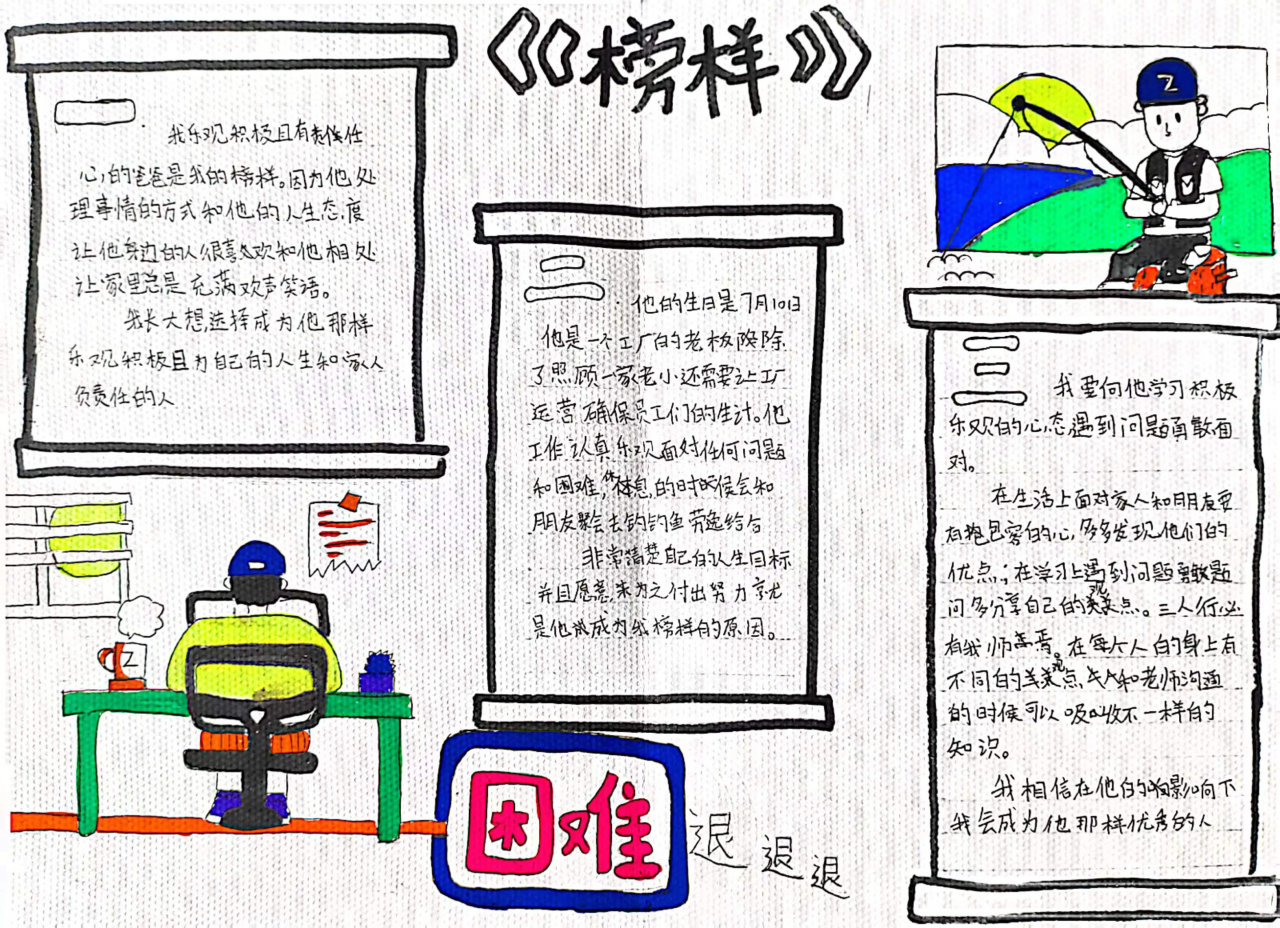 《《榜样》》
一
我乐观积极且有责任
心的爸爸是我的榜样。因为他处
理事情的方式和他的人生态度
让他身边的人很喜欢和他相处
让家里总是充满欢声笑语。
我长大想选择成为他那样
乐观积极且为自己的人生和家人
负责任的人
二
他的生日是7月10日
他是一个工厂的老板除
了照顾一家老小还需要让工厂
运营确保员工们的生计。他
工作认真乐观面对任何问题
和困难,休息的时候会和
朋友聚会去钓钓鱼劳逸结合
非常清楚自己的人生目标
并且愿意来为之付出努力就
是他能成为我榜样的原因。
Z
三
我要向他学习积极
乐观的心态遇到问题勇敢面
对。
在生活上面对家人和朋友要
有抱包容的心,多多发现他们的
优点;在学习上遇到问题勇敢题
问多分享自己的观点。三人行必
有我师焉。在每个人的身上有
不同的观点,和老师沟通
的时候可以吸收不一样的
知识。
我相信在他的影响下
我会成为他那样优秀的人
Z
困难
退退退